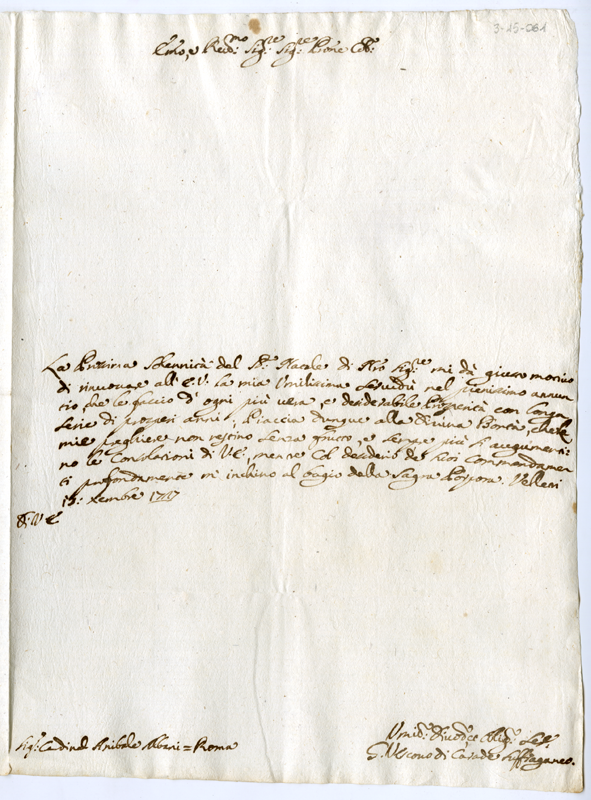 3-15-061
Em̃o, e Reu:mo Sig:re Sig:re Pr̃one Col:mo
La Prossima Solennità del S:o Natale di Nr̃o Sig:re mi dà giusto motiuo
di rinuouare all' E.V. la mia Umilissima Seruitù nel pienissimo annun
cio, che le faccio d' ogni più uera, e desiderabile Prosperità con longa
serie di prosperi anni; Piaccia dunque alla Diuina Bontà, che le
mie preghiere non restino senza frutto, e sempre più si augumenti
no le Consolazioni di V.E., mentre col desiderio de suoi Commandamen
ti profondamente m' inchino al bagio della Sagra Porpora. Velletri
15: Xembre 1717
Di V. E.
Sig:r Cardinal Anibale Albani = Roma
Umil:mo Diuot:mo, e Oblig:mo Ser:re
Vescouo di Suffraganeo.